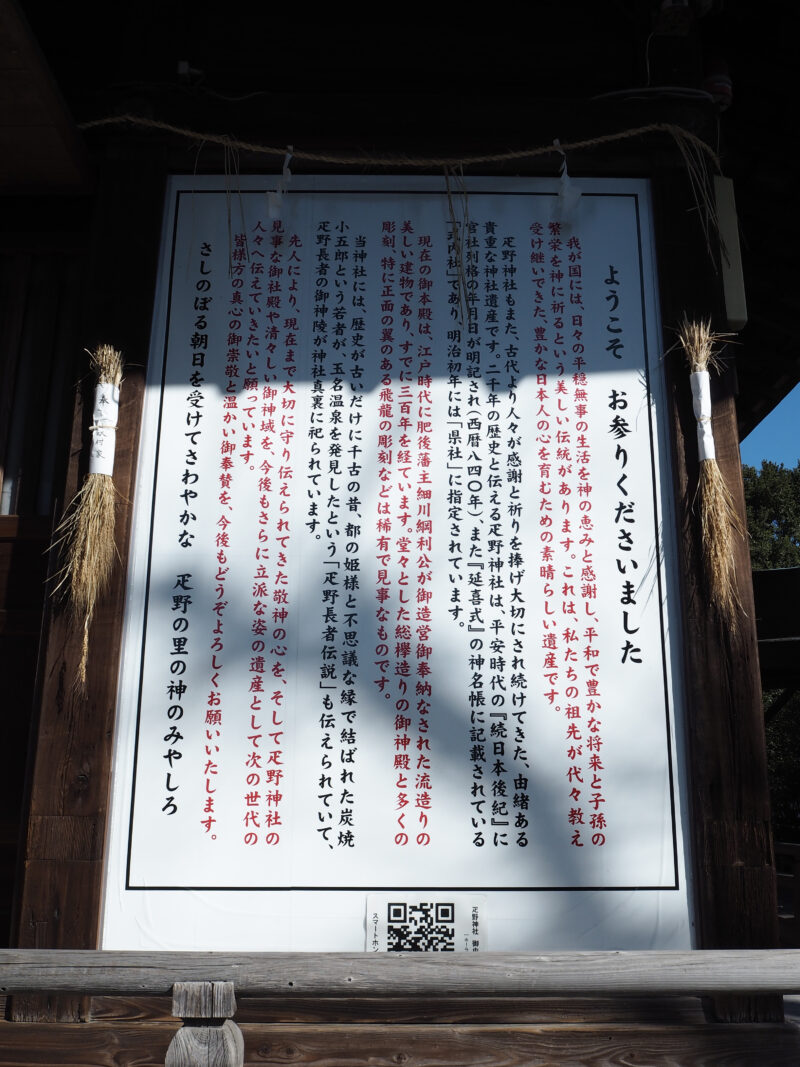 ようこそ　お参りくださいました
我が国には、日々の平穏無事の生活を神の恵みと感謝し、平和で豊かな将来と子孫の
繁栄を神に祈るという美しい伝統があります。これは、私たちの祖先が代々教え
受け継いできた、豊かな日本人の心を育むための素晴らしい遺産です。
疋野神社もまた、古代より人々が感謝と祈りを捧げ大切にされ続けてきた、由緒ある
貴重な神社遺産です。二千年の歴史と伝える疋野神社は、平安時代の『続日本後紀』に
官社列格の年月日が明記され（西暦八四〇年）、また『延喜式』の神名帳に記載されている
「式内社」であり、明治初年には「県社」に指定されています。
現在の御本殿は、江戸時代に肥後藩主細川綱利公が御造営御奉納なされた流造りの
美しい建物であり、すでに三百年を経ています。堂々とした総欅造りの御神殿と多くの
彫刻、特に正面の翼のある飛龍の彫刻などは稀有で見事なものです。
当神社には、歴史が古いだけに千古の昔、都の姫様と不思議な縁で結ばれた炭焼
小五郎という若者が、玉名温泉を発見したという「疋野長者伝説」も伝えられていて、
疋野長者の御神陵が神社真裏に祀られています。
先人により、現在まで大切に守り伝えられてきた敬神の心を、そして疋野神社の
見事な御社殿や清々しい御神域を、今後もさらに立派な姿の遺産として次の世代の
人々へ伝えていきたいと願っています。
皆様方の真心の御崇敬と温かい御奉賛を、今後もどうぞよろしくお願いいたします。
さしのぼる朝日を受けてさわやかな　疋野の里の神のみやしろ
疋野神社　御
スマートホン